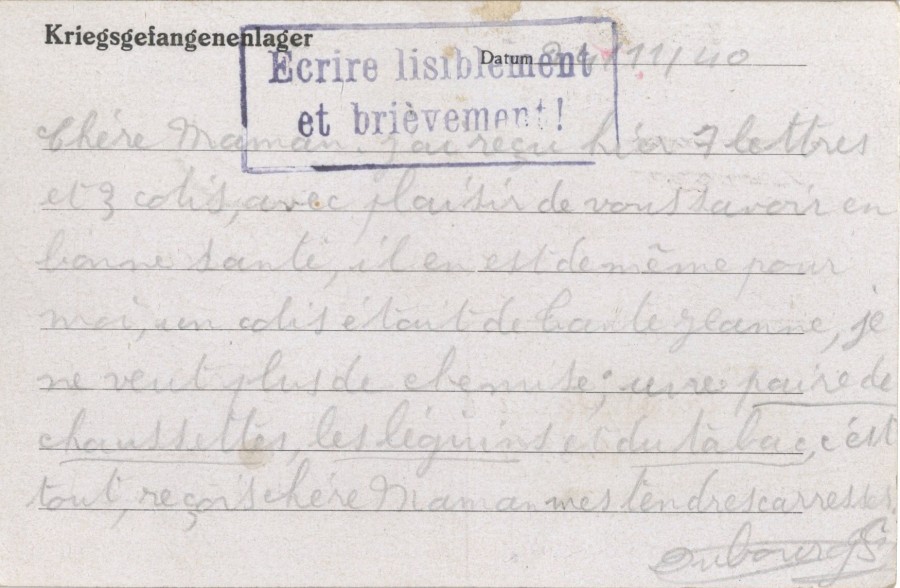 Kriegsgefangenenlager
Datum 24/11/40
Ecrire lisiblement
et brièvement!
Chére Maman. j'ai reçu hier 7 lettres
et 3 colis, avec plaisir de vous savoir en
bonne santé, il en est de même pour
moi, un colis était de tante Jeanne, je
ne veut plus de chemise; une paire de
chaussettes, les léguins et du tabac, c'est
tout, reçois chére Maman mes tendres carresses.
Dubourg